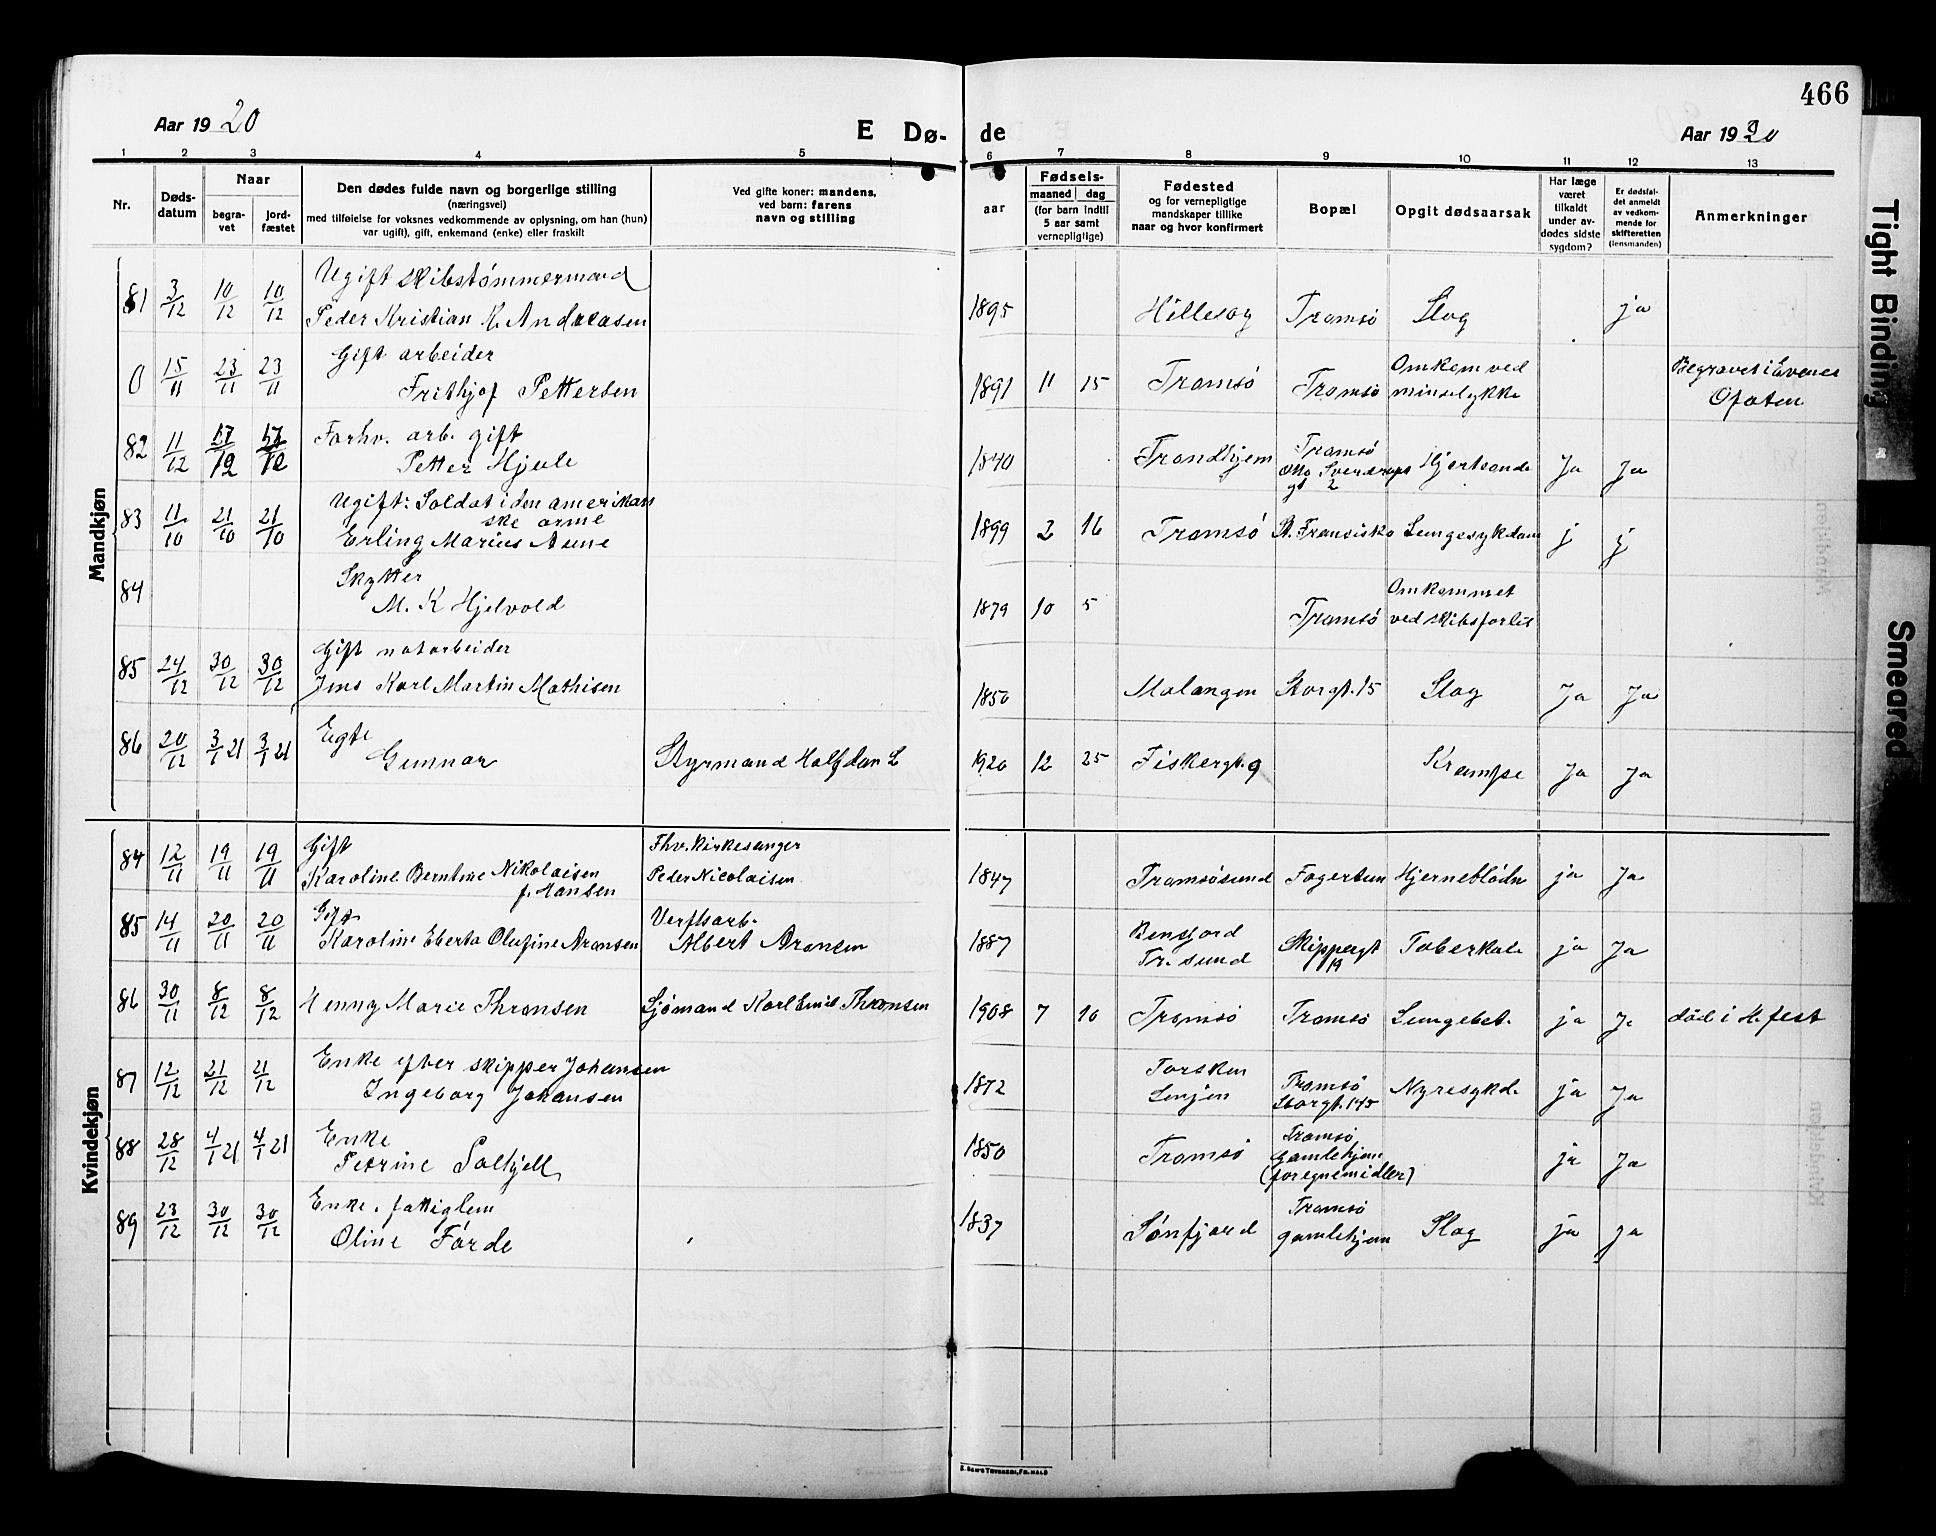 466
Aar 1920
E Dø-
de
Aar 1920
1 2 3 4 5 6 7 8 9 10 11 12 13
Nr.
Døds-
datum
Naar
begra-
vet
jord-
fæstet
Den dødes fulde navn og borgerlige stilling
(næringsvei)
med tilføielse for voksnes vedkommende av oplysning, om han (hun)
var ugift), gift, enkemand (enke) eller fraskilt
Ved gifte koner: mandens,
ved barn: farens
navn og stilling
aar
Fødsels-
maaned dag
(for barn indtil
5 aar samt
vernepligtige)
Fødested
og for vernepligtige
mandskaper tillike
naar og hvor konfirmert
Bopæl
Opgit dødsaarsak
Har læge
været
tilkaldt
under av-
dødes sidste
sygdom?
Er dødsfal-
det anmeldt
av vedkom-
mende for
skifteretten
(lensmanden)
Anmerkninger
Mandkjøn
81 3/12 10/12 10/12 Ugift skibstømmermand
Peder Kristian K. Andreasen 1895 Hillesøy Tromsø Slag ja
0 15/11 23/11 23/11 Gift arbeider
Frithjof Pettersen 1891 11 15 Tromsø Tromsø Omkom ved
mineulykke Begravet i Evenes
Ofoten
82 11/12 17/12 17/12 Forhv. arb. gift
Petter Hjule 1840 Trondhjem Tromsø
Otto Sverdrups
gt 2 Hjertsonde Ja Ja
83 11/10 21/10 21/10 Ugift: Soldat i den amerikan
ske arme
Erling Marius Aune 1899 2 16 Tromsø St. Fransisko Lungesykdom j j
84 Skytter
M. K Hjelvold 1879 10 5 Tromsø Omkommet
ved skibsforlis
85 24/12 30/12 30/12 Gift notarbeider
Jens Karl Martin Mathisen 1850 Malangen Storgt. 15 Slag Ja Ja
86 20/12 3/1 21 3/1 21 Egte
Gunnar Styrmand Halfdan L 1920 12 25 Fiskergt. 9 Krampe Ja Ja
Kvindekjøn
84 12/11 19/11 19/11 Gift
Karoline Berntine Nikolaisen
f. Hansen Fhv. kirkesanger
Peder Nicolaisen 1847 Tromsøsund Fagertun Hjerneblødn ja Ja
85 14/11 20/11 20/11 Gift
Karoline Eberta Olufine Aronsen Verftsarb.
Albert Aronsen 1887 Bensjord
Tr. sund Skippergt
19 Tuberkol. ja Ja
86 30/11 8/12 8/12 Henny Marie Thronsen Sjømand Karl Emil Thronsen 1908 7 10 Tromsø Tromsø Lungebet. ja Ja død i H. fest
87 12/12 21/12 21/12 Enke efter skipper Johansen
Ingeborg Johansen 1872 Torsken
Senjen Tromsø
Storgt. 145 Nyresykd. ja Ja
88 28/12 4/1 21 4/1 21 Enke
Petrine Solhjell 1850 Tromsø Tromsø
gamlehjem
(for egne midler) ja Ja
89 23/12 30/12 30/12 Enke, fattiglem
Oline Førde 1837 Sønfjord Tromsø
gamlehjem Slag ja ja
Tight Binding
Smeared